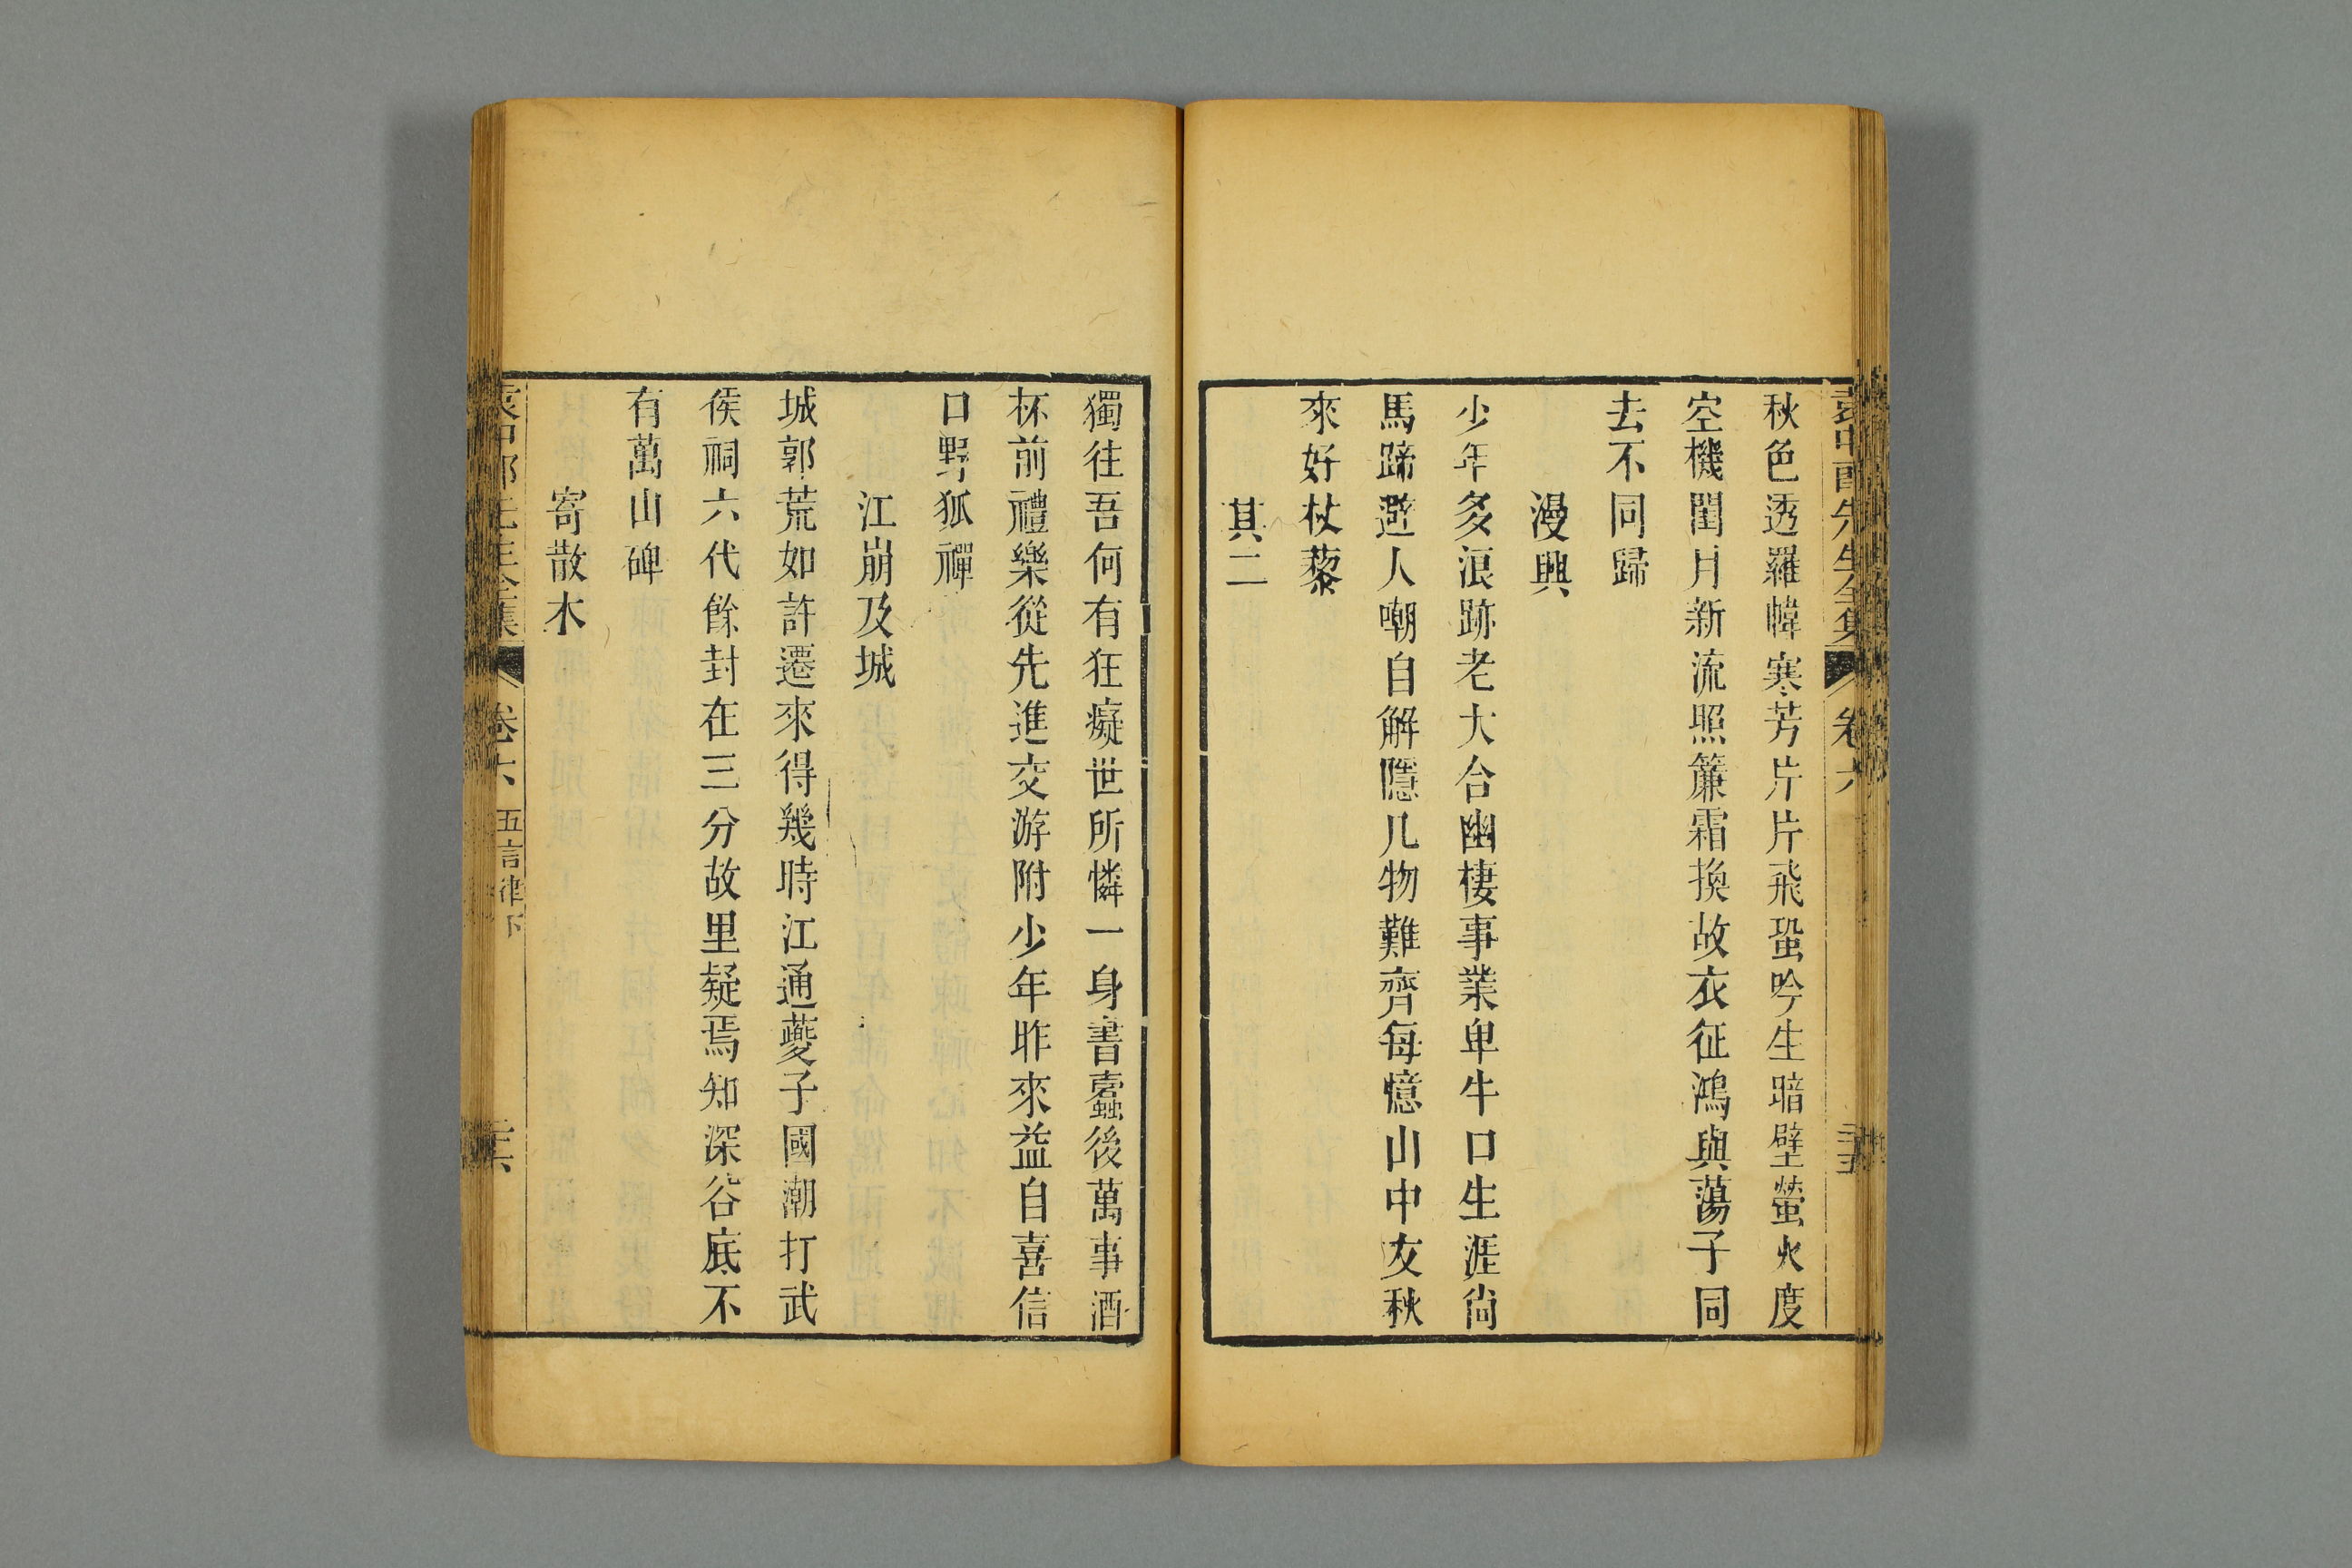 袁中郎先生全集 卷六 三十五
秋色透羅幃寒芳片片飛蛩吟生暗壁螢火度
空機閨月新流照簾霜換故衣征鴻與蕩子同
去不同歸
漫興
少年多浪跡老大合幽棲事業卑牛口生涯尙
馬蹄遊人嘲自解隱几物難齊每憶山中友秋
來好杖藜
其二
獨往吾何有狂癡世所憐一身書蠹後萬事酒
杯前禮樂從先進交游附少年昨來益自喜信
口野狐禪
江崩及城
城郭荒如許遷來得幾時江通夔子國潮打武
侯祠六代餘封在三分故里疑焉知深谷底不
有萬山碑
寄散木
袁中郎先生全集 卷六 五言律下 三十六